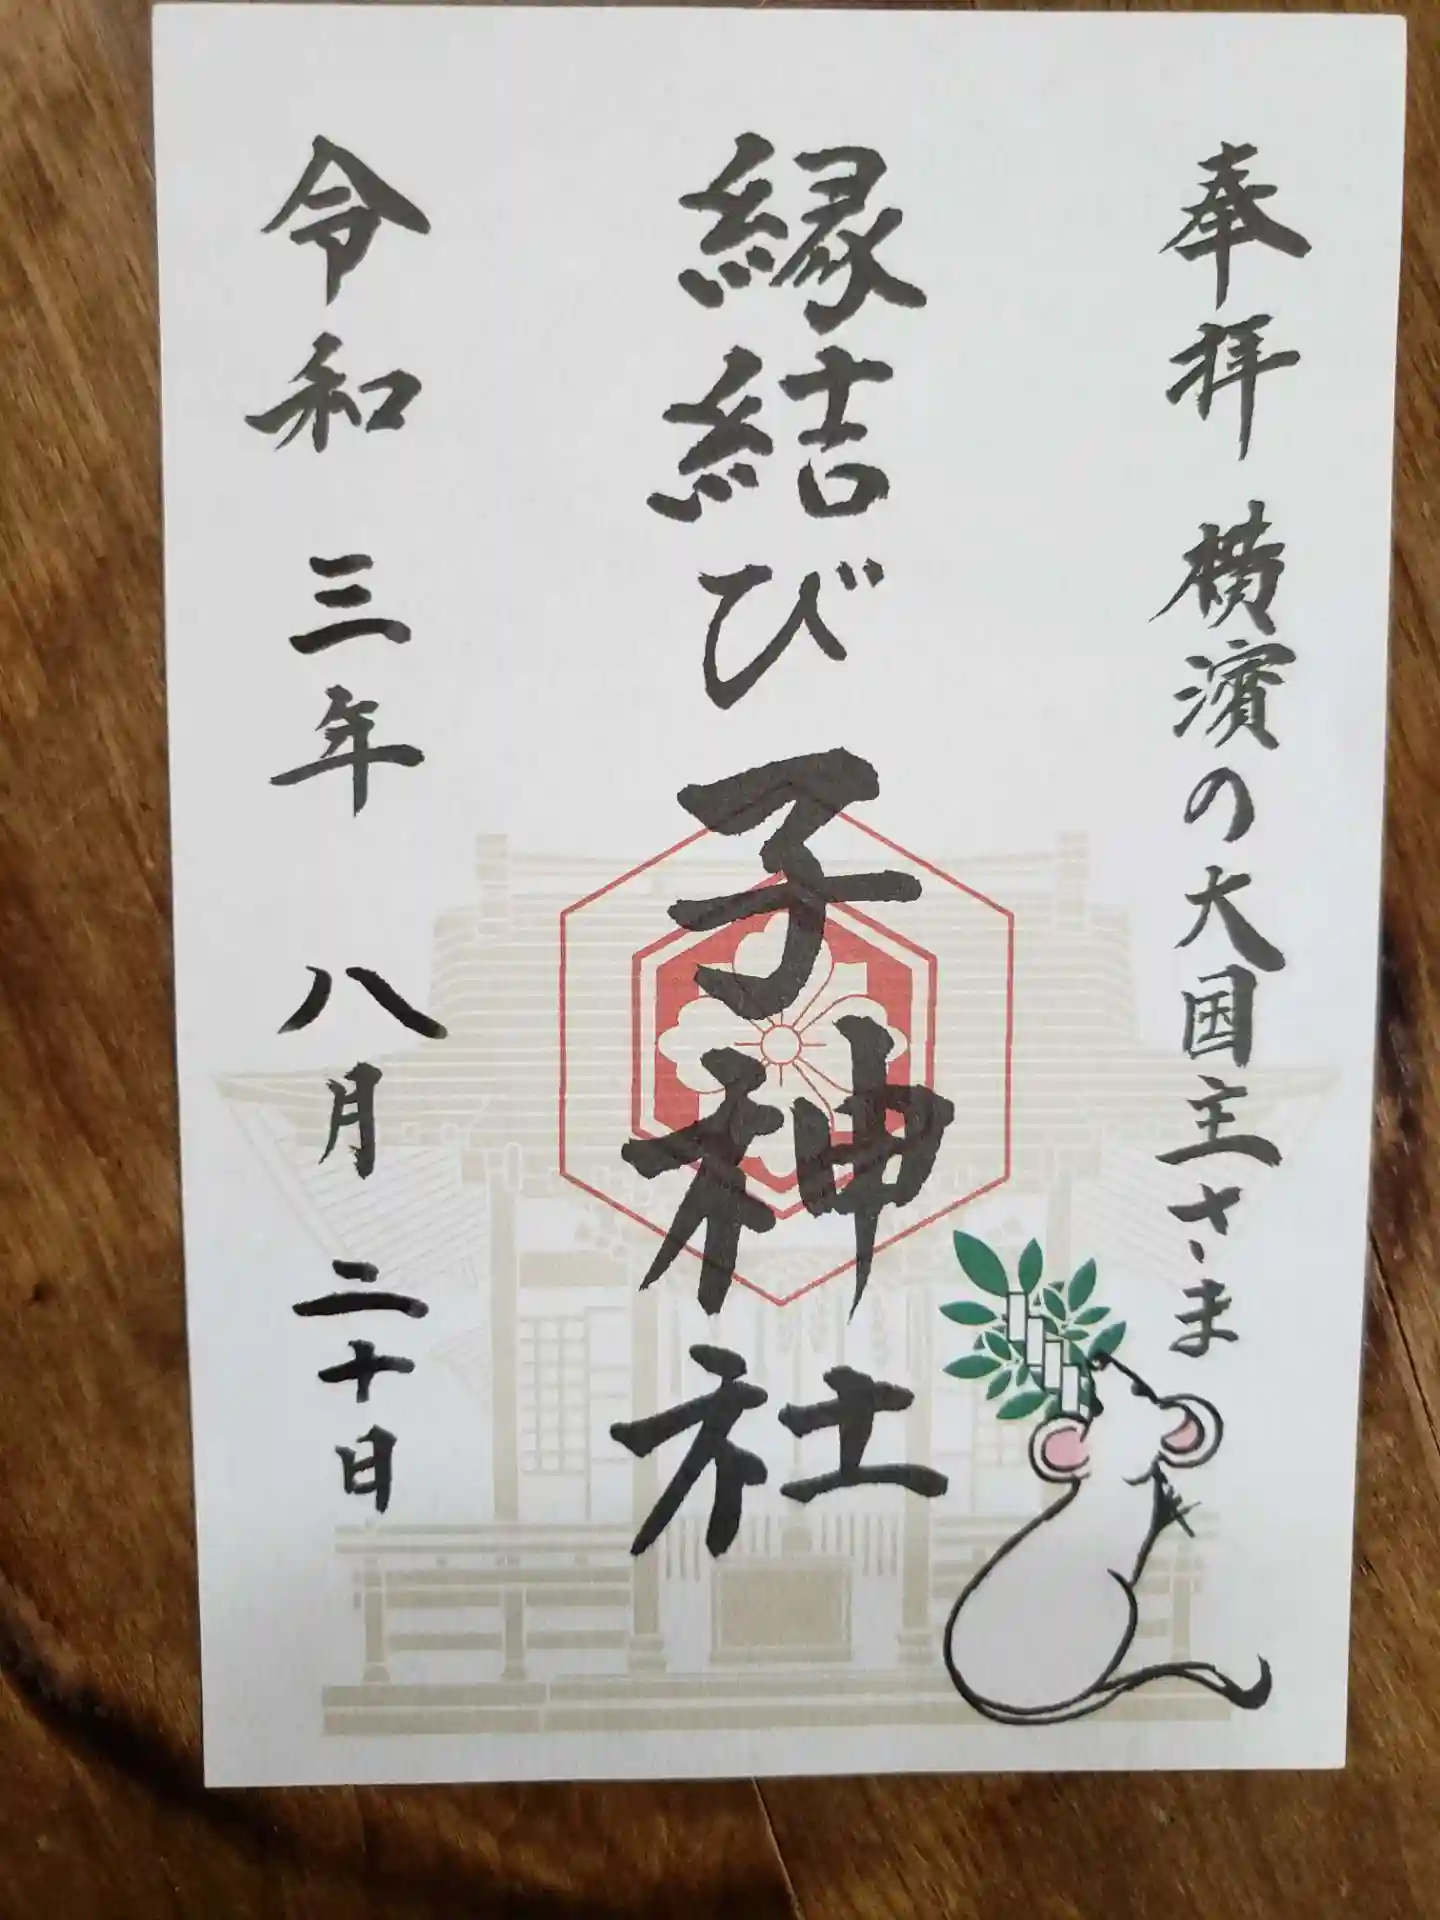 奉拝 横濱の大国主さま
縁結び 子神社
令和三年 八月 二十日